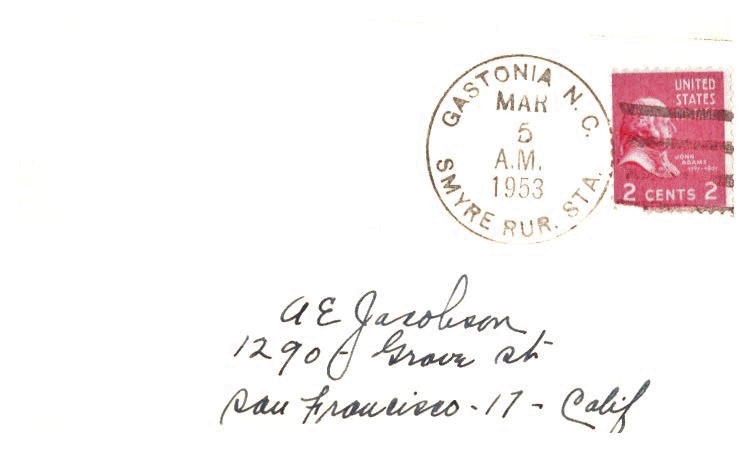 GASTONIA N. C.
MAR
5
A.M.
1953
SMYRE RUR. STA.
UNITED
STATES
JOHN
ADAMS
1797-1801
2 CENTS 2
A E Jacobson
1290 - Grove St
San Francisco - 17 - Calif